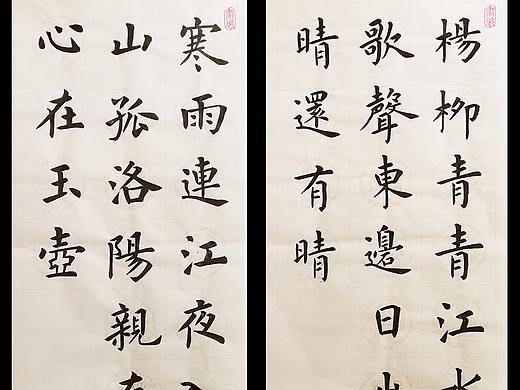 楊柳青青江
歌聲東邊日
晴還有晴
寒雨連江夜
山孤洛陽親
心在玉壺